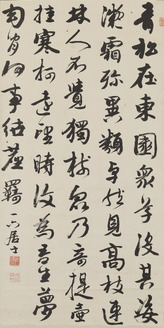 青松在東園眾草沒其姿
凝霜殄異類卓然見高枝連
林人不覺獨樹眾乃奇提壺
挂寒柯遠望時復為吾生夢
幻間何事紲塵羈 居士